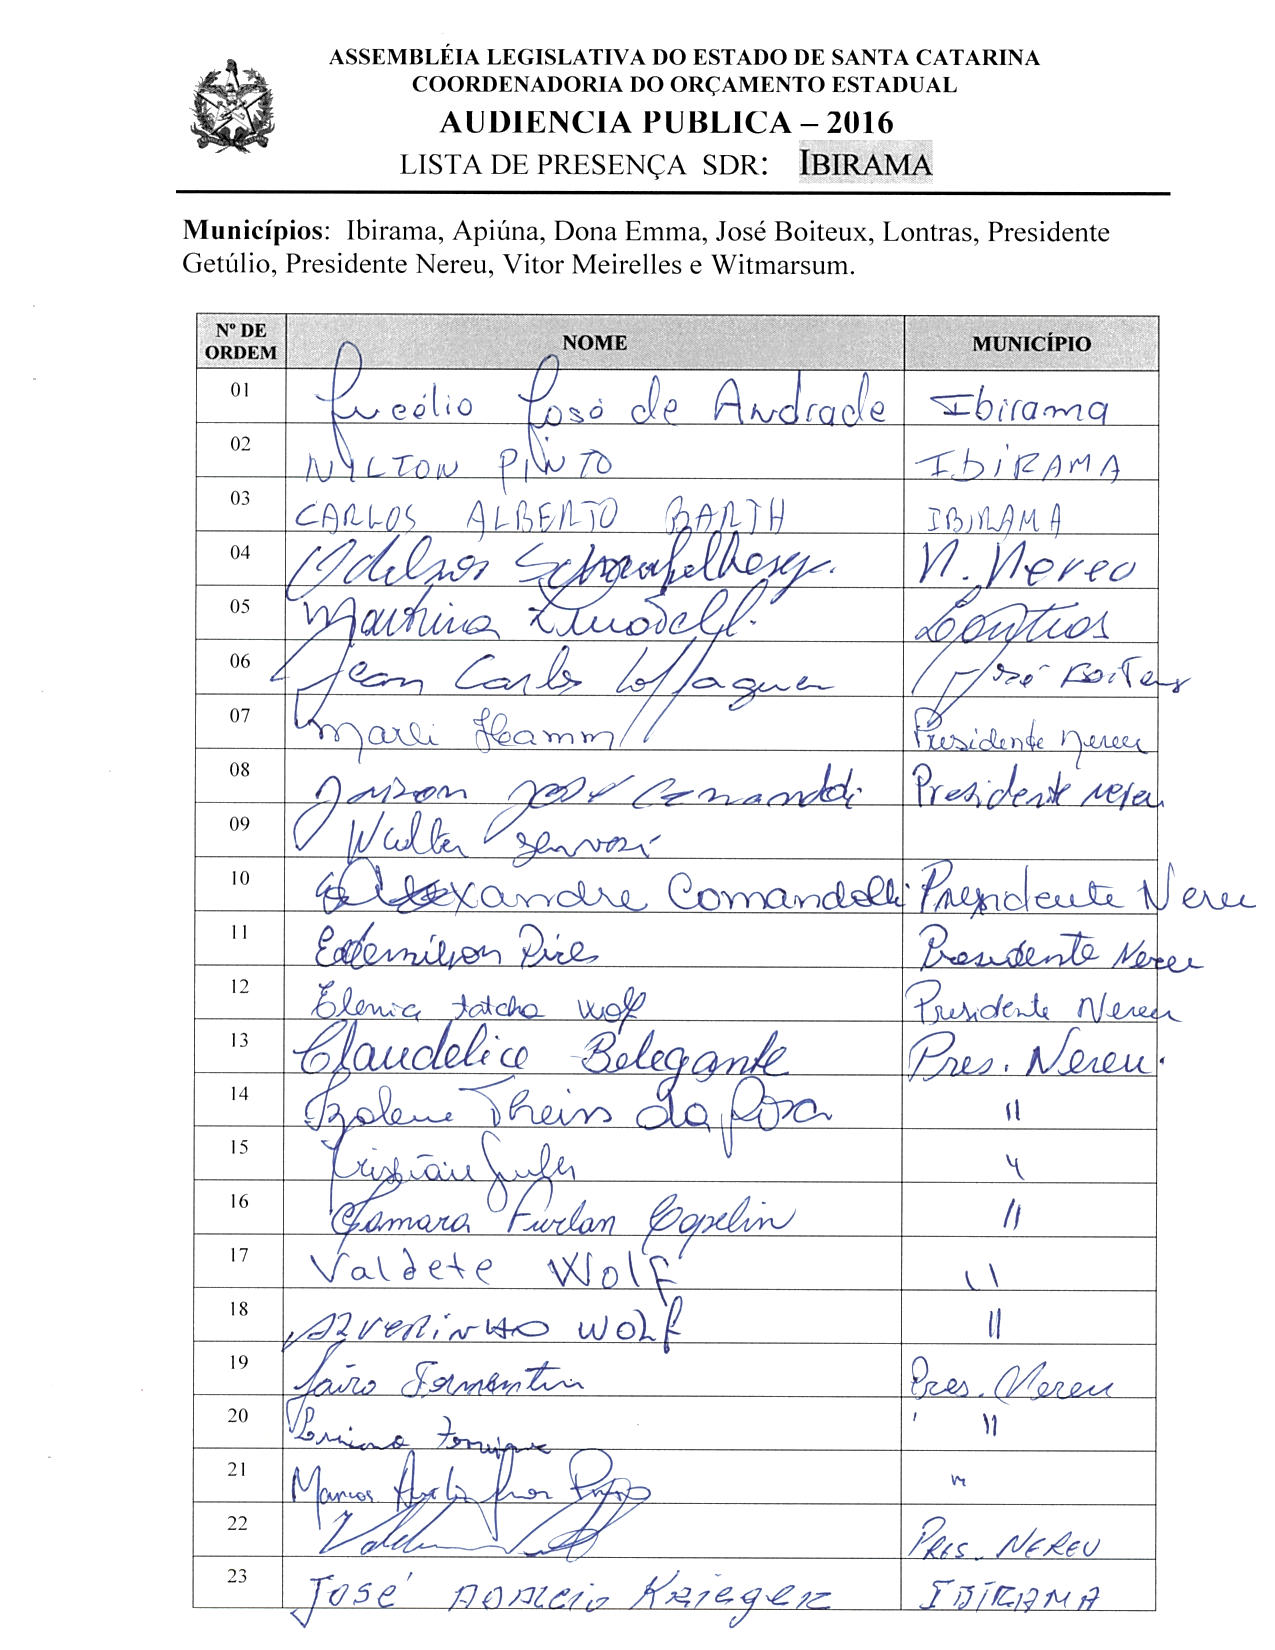 ASSEMBLÉIA LEGISLATIVA DO ESTADO DE SANTA CATARINA
COORDENADORIA DO ORÇAMENTO ESTADUAL
AUDIENCIA PUBLICA – 2016
LISTA DE PRESENÇA SDR: IBIRAMA
Municípios: Ibirama, Apiúna, Dona Emma, José Boiteux, Lontras, Presidente
Getúlio, Presidente Nereu, Vitor Meirelles e Witmarsum.
Nº DE ORDEM NOME MUNICÍPIO
01 Lucélio José de Andrade Ibirama
02 NILTON PINTO IBIRAMA
03 CARLOS ALBERTO BARTH IBIRAMA
04 Nereu
05 Martina Lontras
06 Jean Carlos José Boiteux
07 Marli Hamm Presidente Nereu
08 José Comandoli Presidente Nereu
09 Walter
10 Alexandre Comandolli Presidente Nereu
11 Edemilson Pires Presidente Nereu
12 Wolf Presidente Nereu
13 Claudelice Belegante Pres. Nereu.
14 Theiss da Rosa "
15
16 Tamara Furlan "
17 Valdete Wolf "
18 WOLF "
19 Jairo Formentin Pres. Nereu
20 "
21 Marcos "
22 PRES. NEREU
23 JOSÉ KRIEGER IBIRAMA